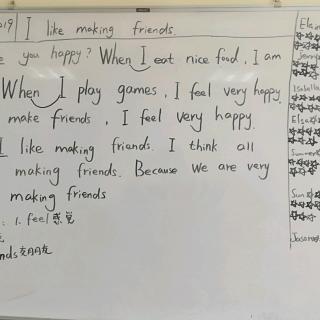 019 I like making friends.
e you happy? When I eat nice food, I am
When I play games, I feel very happy.
make friends, I feel very happy.
I like making friends. I think all
making friends. Because we are very
making friends
: 1. feel 感觉
nds 交朋友
Elain
Jerry
Isabella
Elsa
Summer
Sun
Jason